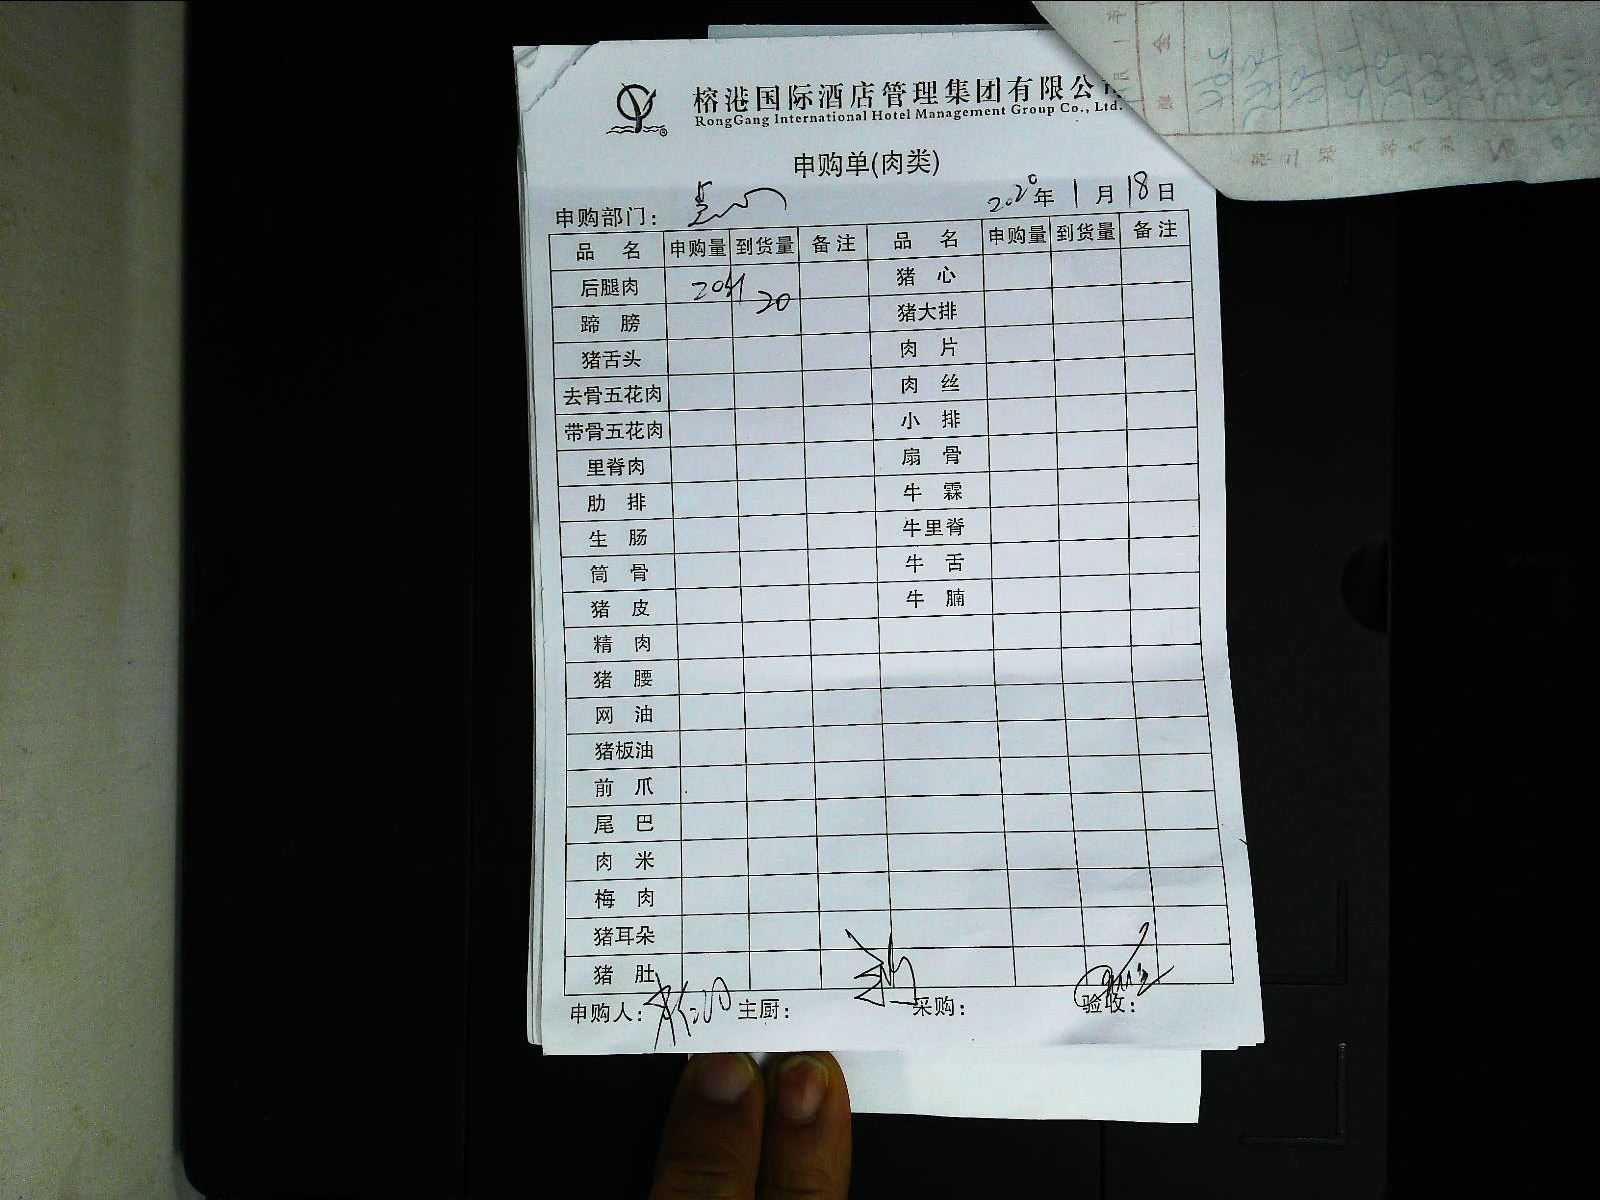 榕港国际酒店管理集团有限公
RongGang International Hotel Management Group Co., Ltd.
申购单(肉类)
申购部门： 2020年 1月 18日
品 名 申购量 到货量 备注 品 名 申购量 到货量 备注
后腿肉 20斤 20 猪 心
蹄 膀 猪大排
猪舌头 肉 片
去骨五花肉 肉 丝
带骨五花肉 小 排
里脊肉 扇 骨
肋 排 牛 霖
生 肠 牛里脊
筒 骨 牛 舌
猪 皮 牛 腩
精 肉
猪 腰
网 油
猪板油
前 爪
尾 巴
肉 米
梅 肉
猪耳朵
猪 肚
申购人： 主厨： 采购： 验收：